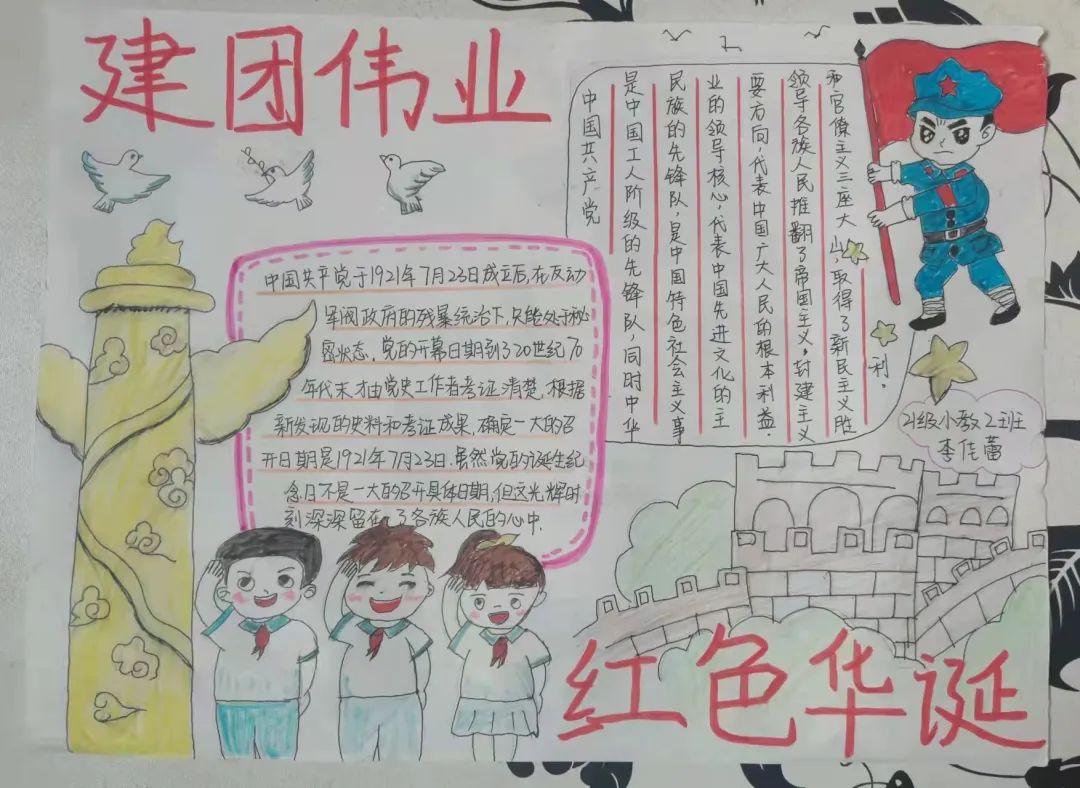 建团伟业
中国共产党于1921年7月23日成立后,在反动
军阀政府的残暴统治下,只能处于秘
密状态,党的开幕日期到了20世纪70
年代末才由党史工作者考证清楚,根据
新发现的史料和考证成果,确定一大的召
开日期是1921年7月23日.虽然党的诞生纪
念日不是一大的召开具体日期,但这光辉时
刻深深留在了各族人民的心中.
中国共产党
是中国工人阶级的先锋队,同时中华
民族的先锋队,是中国特色社会主义事
业的领导核心,代表中国先进文化的主
要方向,代表中国广大人民的根本利益.
领导各族人民推翻了帝国主义,封建主义
和官僚主义三座大山,取得了新民主义胜
利。
21级小教2班
李佳蕾
红色华诞